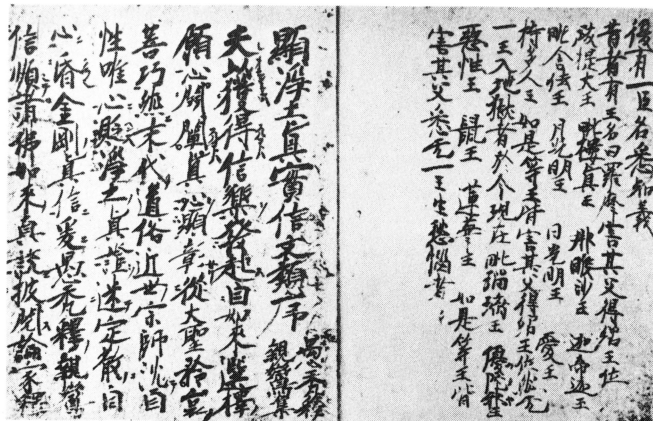 復有一臣名悉知義
昔者有王名曰羅摩害其父得紹王位
跋提大王 毗樓真王 那睺沙王 迦帝迦王
毗舍佉王 月光明王 日光明王 愛王
持多人王 如是等王皆害其父得紹王位然无
一王入地獄者於今現在毗瑠璃王 優陀邪王
惡性王 鼠王 蓮華王 如是等王皆
害其父悉无一王生愁惱者
顯淨土真實信文類序 愚禿釋親鸞集
夫以獲得信樂發起自如來選擇
願心開闡真心顯彰從大聖矜哀
善巧然末代道俗近世宗師沈自
性唯心貶淨土真證迷定散自
心昏金剛真信爰愚禿釋親鸞
信順諸佛如來真說披閱論家釋